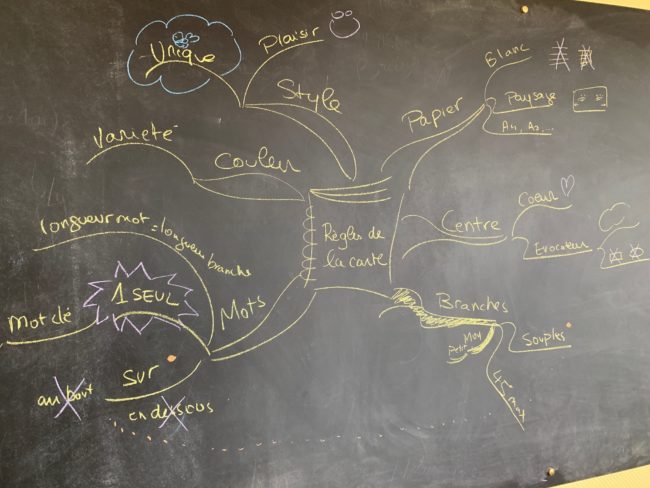 Unique
Plaisir
Style
Variété
Couleur
longueur mot = longueur branche
Mots
1 SEUL
Mot clé
Sur
au bout
en dessous
Règles de
la carte
Papier
Blanc
Paysage
A4, A3, ...
Centre
Coeur
Evocateur
Branches
Souples